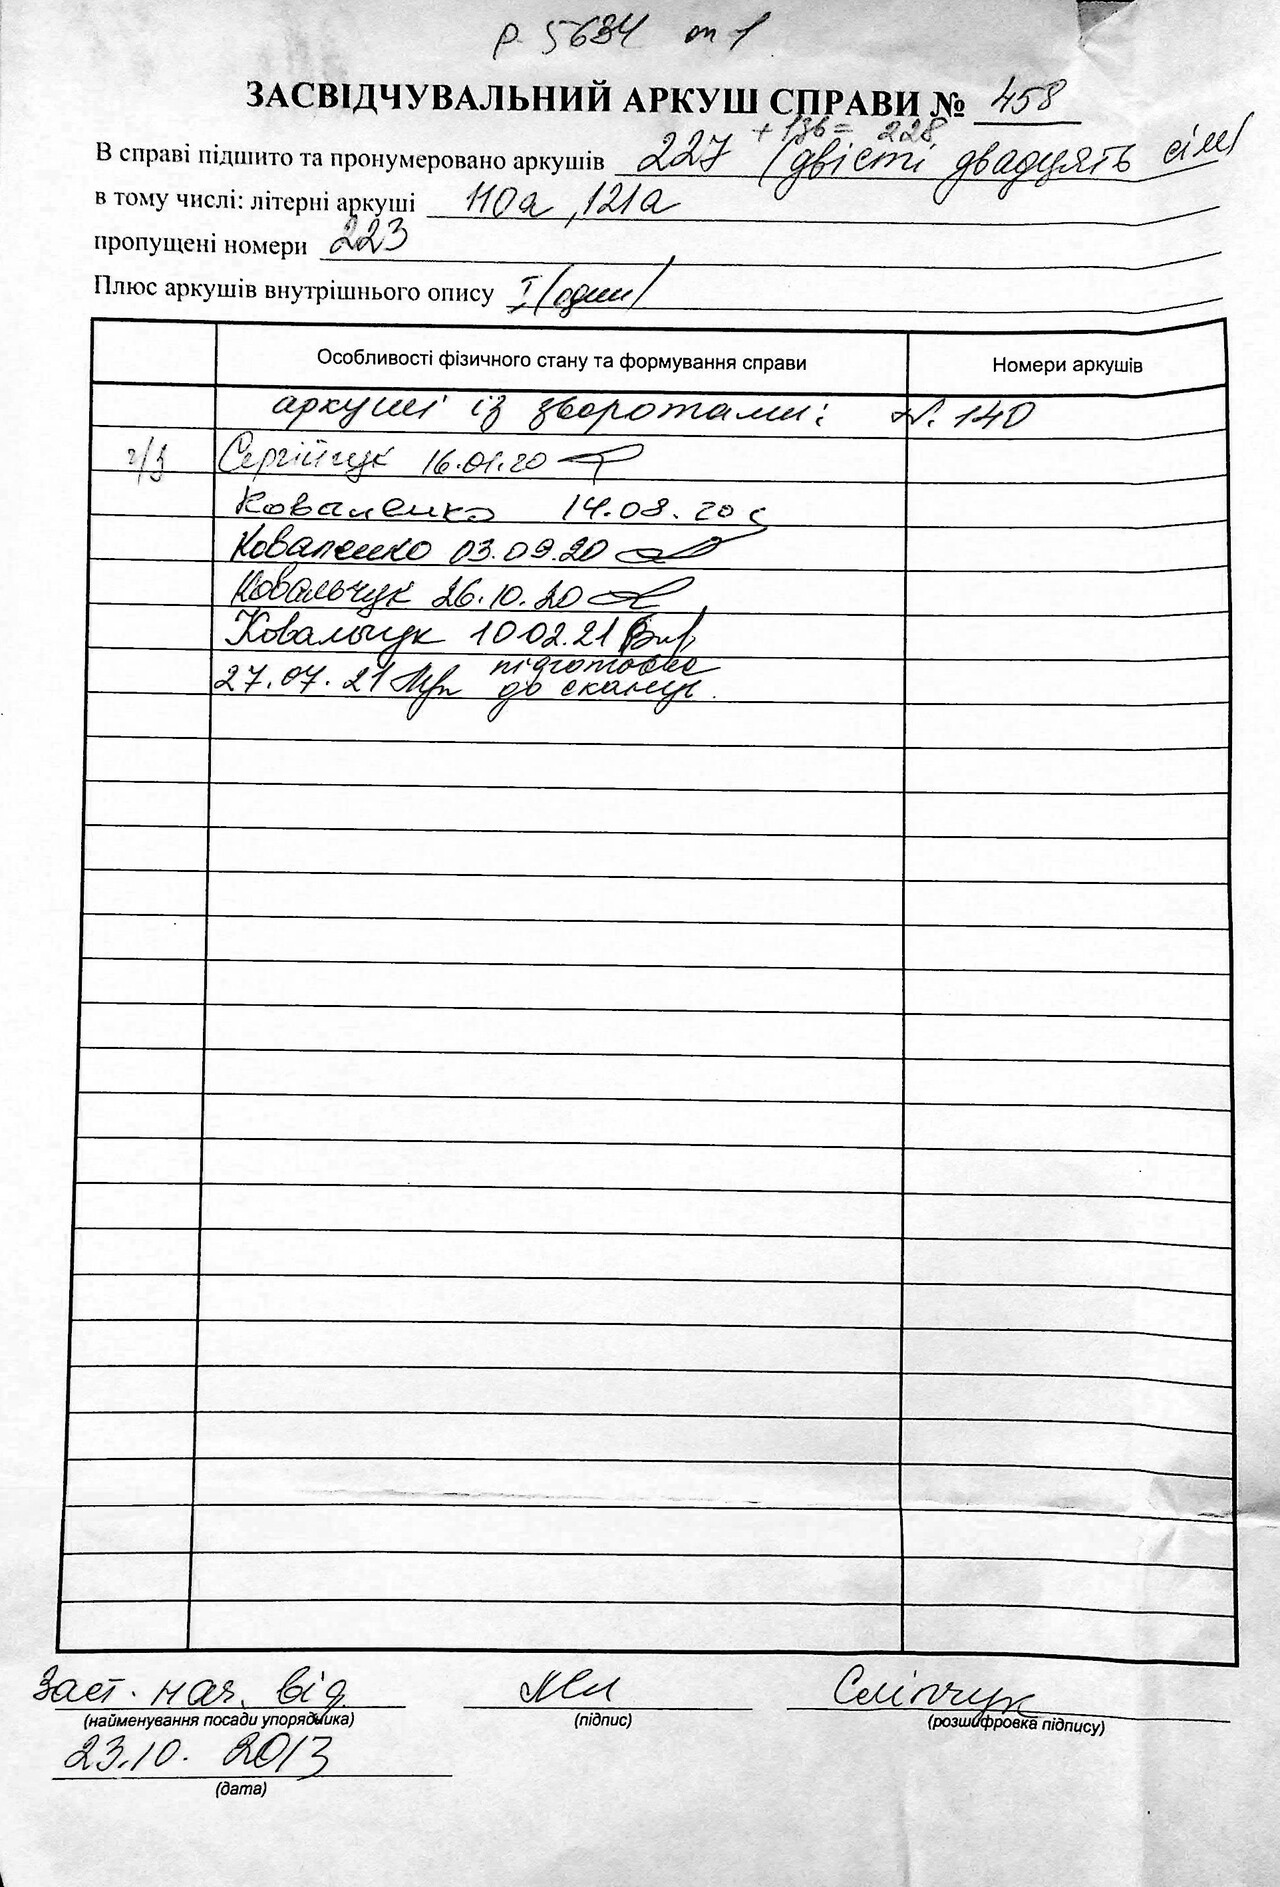 р 5684 оп 1
ЗАСВІДЧУВАЛЬНИЙ АРКУШ СПРАВИ № 458
+ 1зв = 228
В справі підшито та пронумеровано аркушів 227 (двісті двадцять сім)
в тому числі: літерні аркуші 110а, 121а
пропущені номери 223
Плюс аркушів внутрішнього опису 1 (один)
Особливості фізичного стану та формування справи Номери аркушів
аркуші із зворотами: 140
Сергійчук 16.01.20
Коваленко 14.08.20
Коваленко 03.09.20
Ковальчук 26.10.20
Ковальчук 10.02.21
27.07.21 підготовка
до сканув.
Заст. нач. від. Сліпчук
(найменування посади упорядника) (підпис) (розшифровка підпису)
23.10. 2013
(дата)